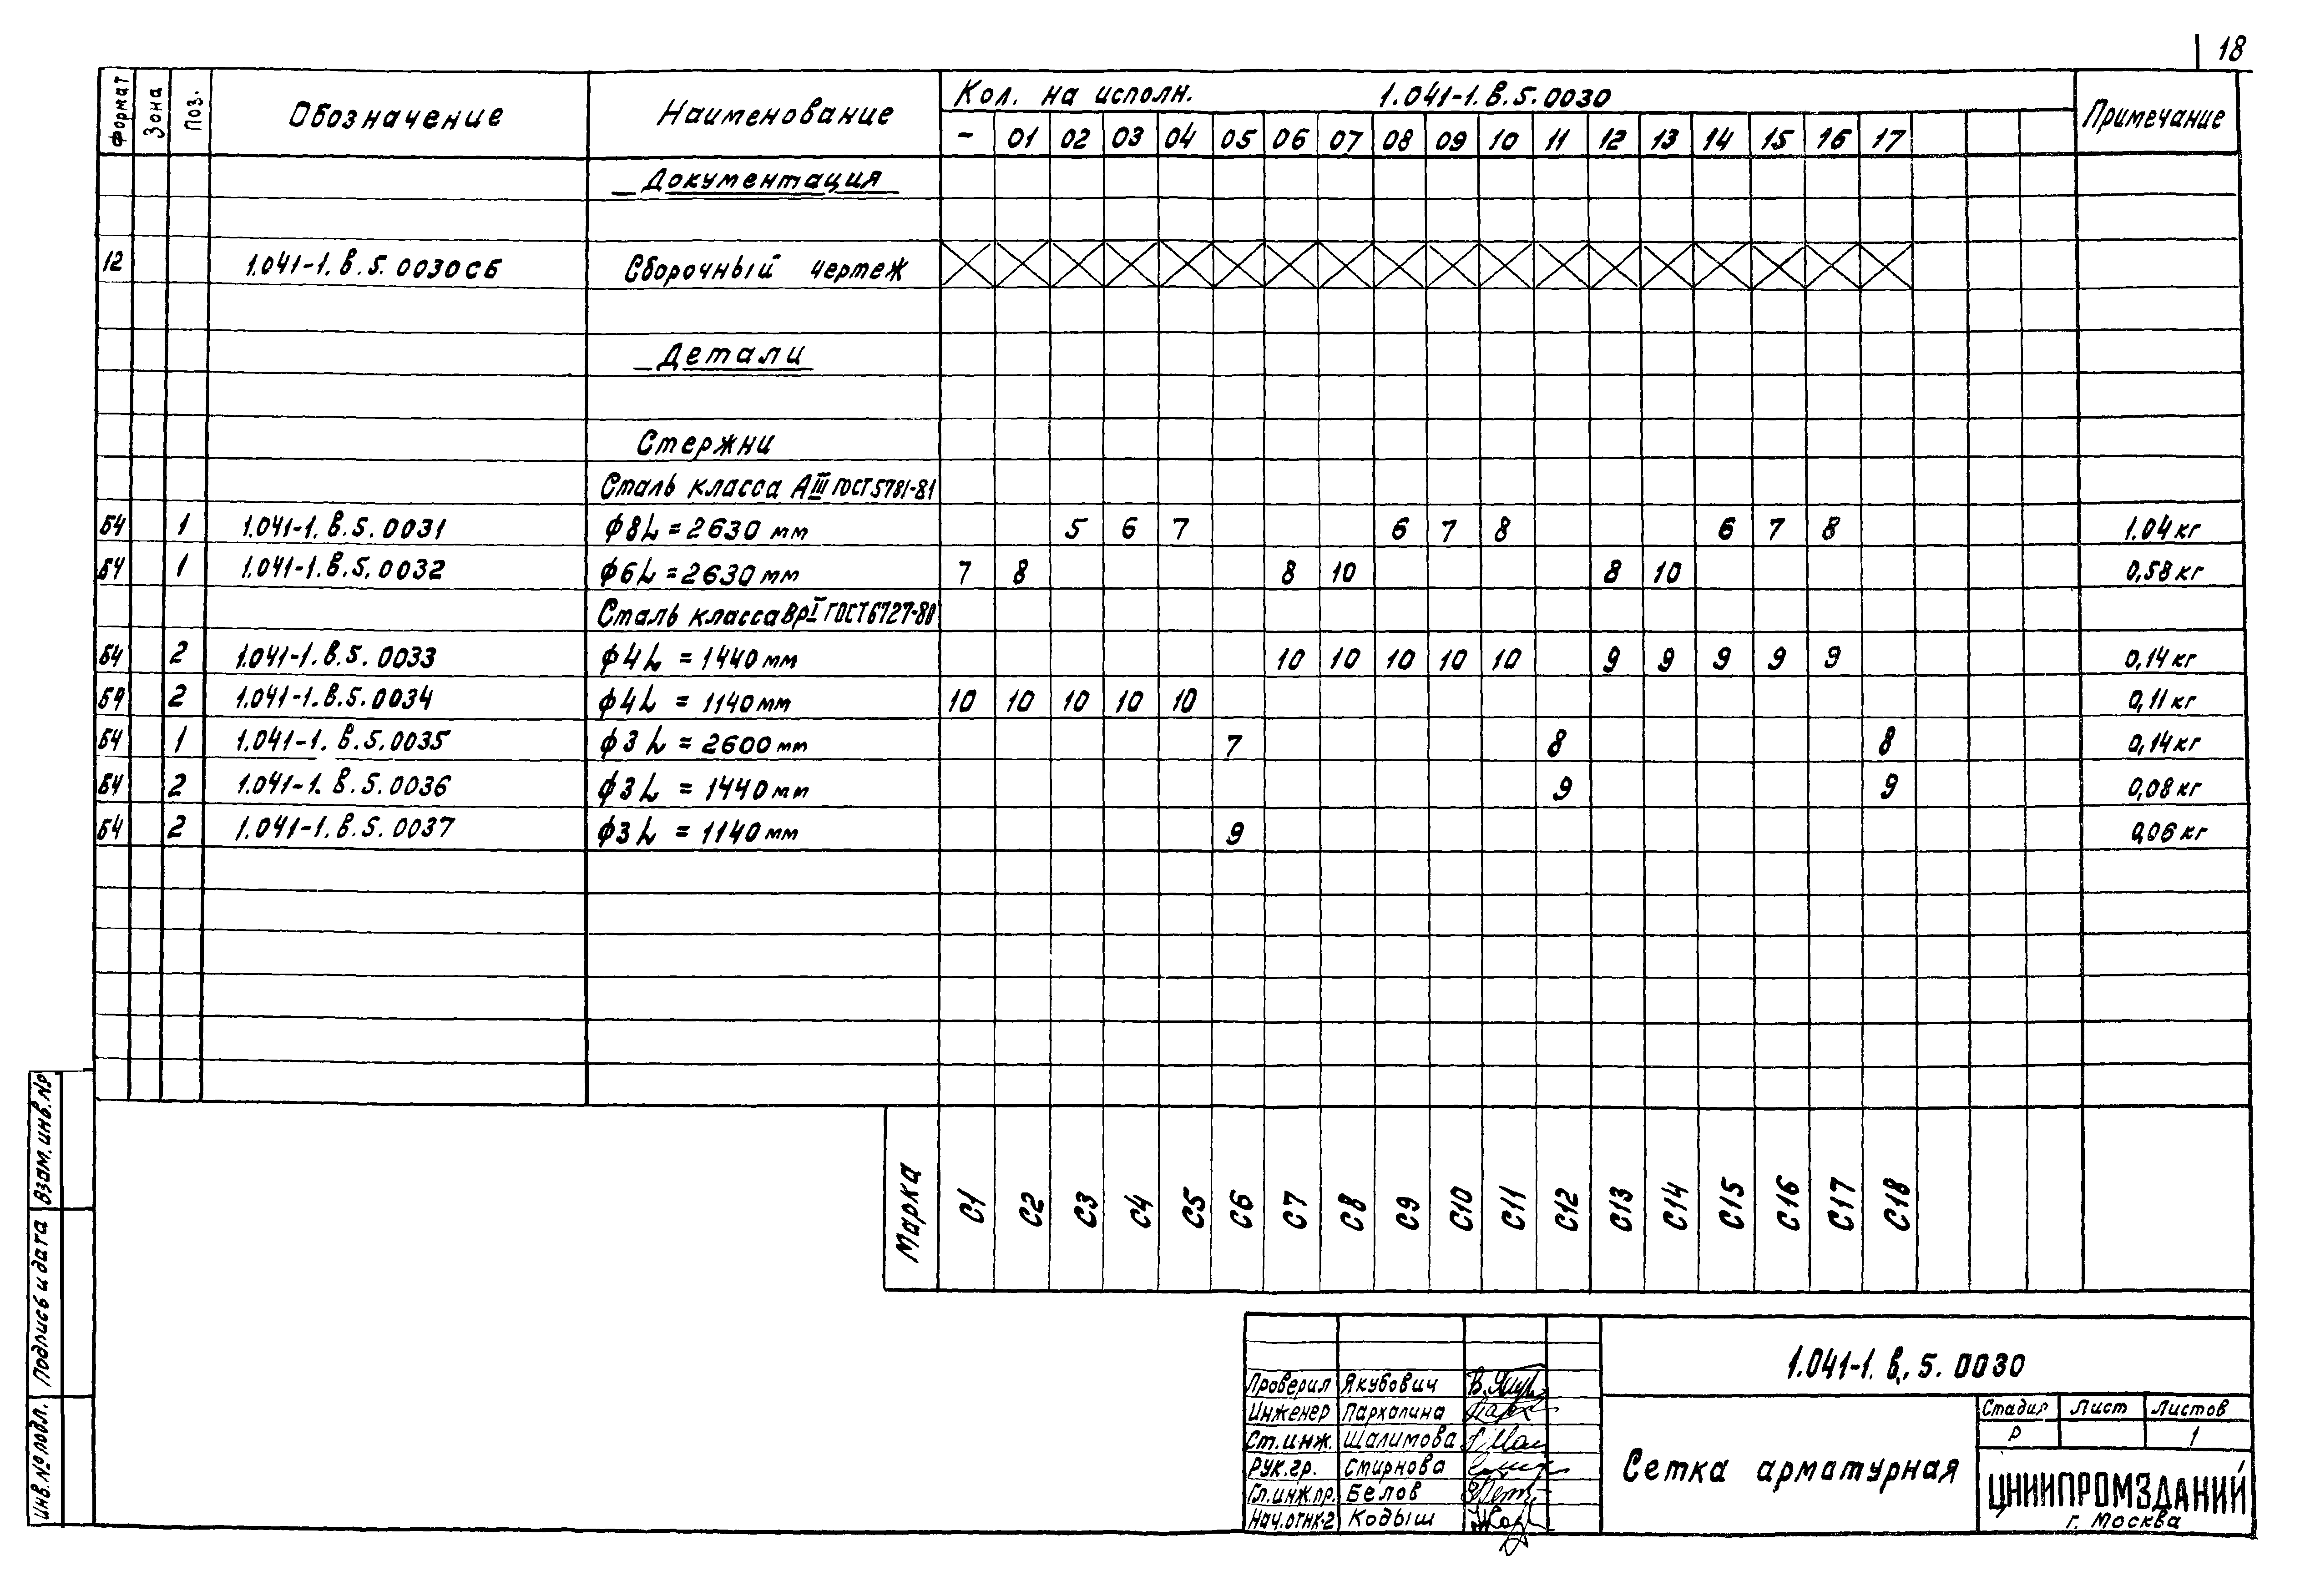 18
Формат Зона Поз. Обозначение Наименование Кол. на исполн. 1.041-1.в.5.0030 Примечание
- 01 02 03 04 05 06 07 08 09 10 11 12 13 14 15 16 17
Документация
12 1.041-1.в.5.0030СБ Сборочный чертеж
Детали
Стержни
Сталь класса АIII ГОСТ5781-81
Б4 1 1.041-1.в.5.0031 ф8L=2630 мм 5 6 7 6 7 8 6 7 8 1.04кг
Б4 1 1.041-1.в.5.0032 ф6L=2630мм 7 8 8 10 8 10 0,58кг
Сталь класса ВрI ГОСТ6727-80
Б4 2 1.041-1.в.5.0033 ф4L = 1440мм 10 10 10 10 10 9 9 9 9 9 0,14кг
Б4 2 1.041-1.в.5.0034 ф4L = 1140мм 10 10 10 10 10 0,11кг
Б4 1 1.041-1.в.5.0035 ф3L = 2600мм 7 8 8 0,14кг
Б4 2 1.041-1.в.5.0036 ф3L = 1440мм 9 9 0,08кг
Б4 2 1.041-1.в.5.0037 ф3L = 1140мм 9 0,06кг
Марка С1 С2 С3 С4 С5 С6 С7 С8 С9 С10 С11 С12 С13 С14 С15 С16 С17 С18
Взам. инв. №
Подпись и дата
Инв. № подл.
1.041-1.в.5.0030
Проверил Якубович
Инженер Пархалина
Ст. инж. Шалимова
Рук.гр. Смирнова
Гл.инж.пр. Белов
Нач.отнк-2 Кодыш
Сетка арматурная
Стадия Лист Листов
Р 1
ЦНИИПРОМЗДАНИЙ
г. Москва